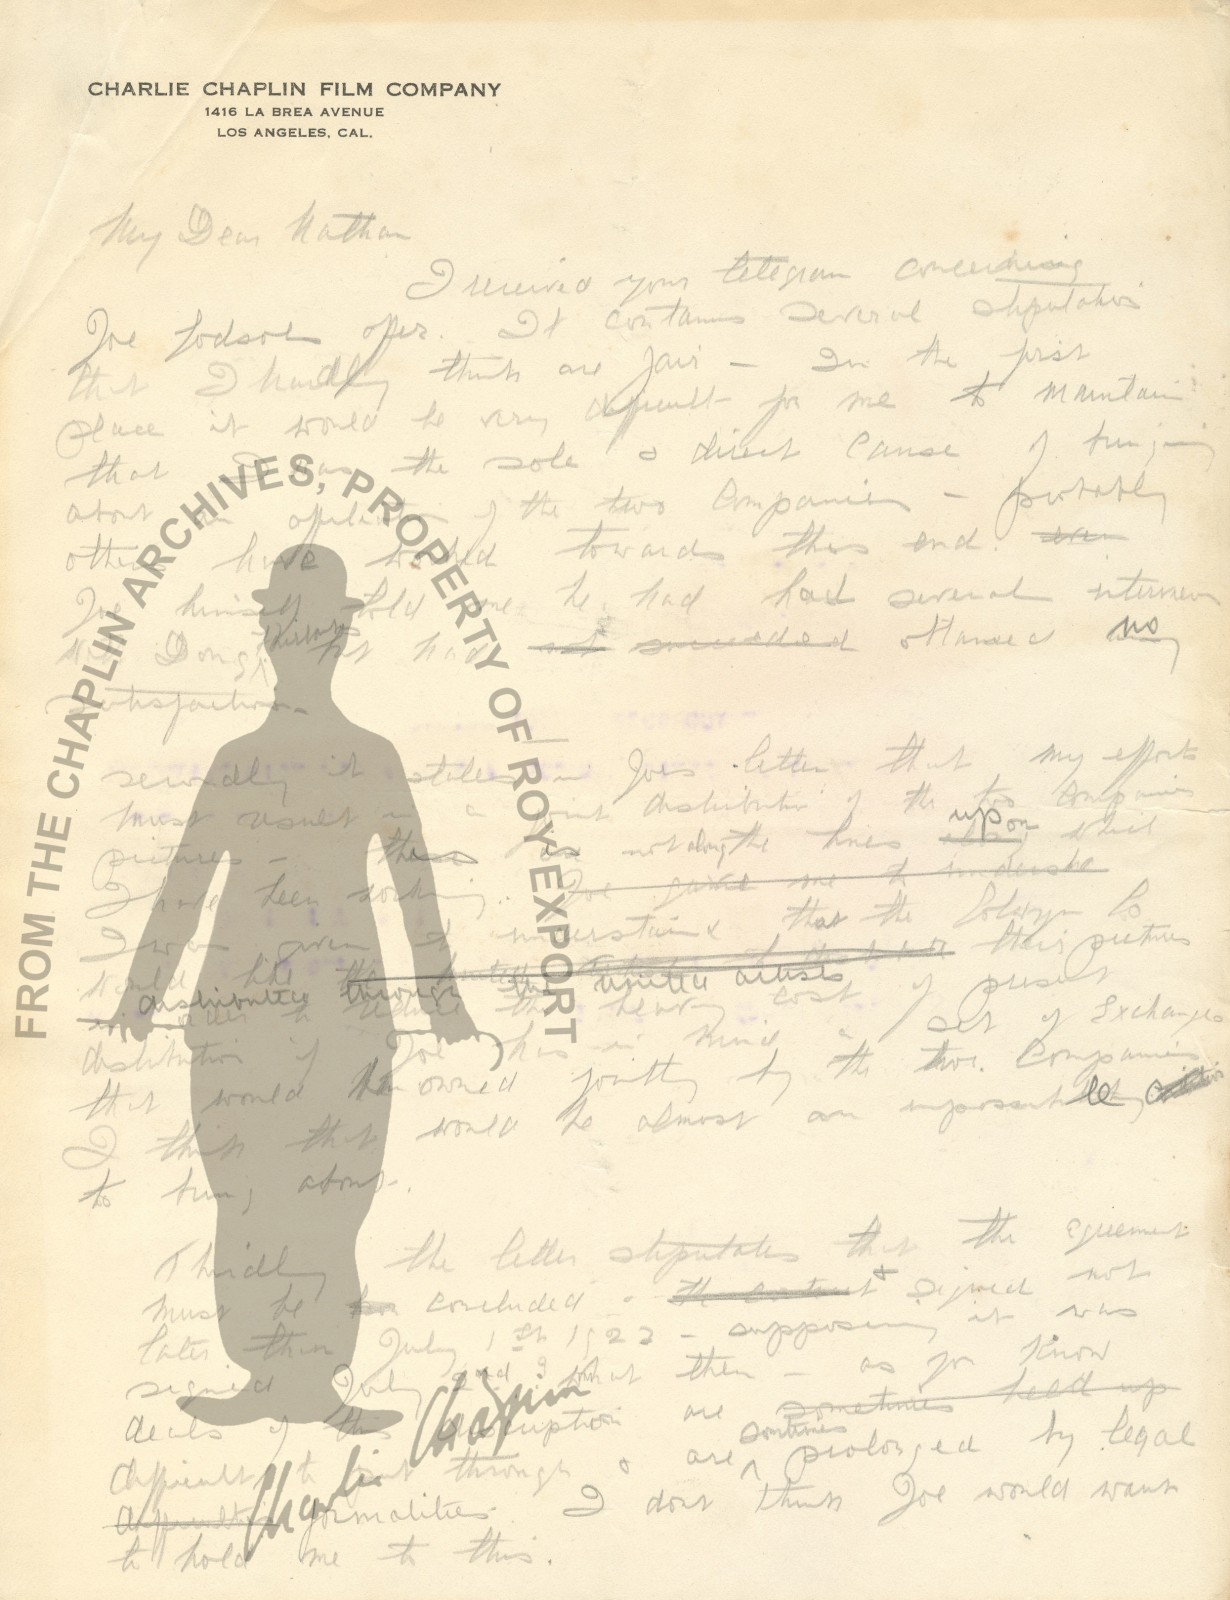 CHARLIE CHAPLIN FILM COMPANY
1416 LA BREA AVENUE
LOS ANGELES, CAL.
My Dear Nathan
I received your telegram concerning
Joe Godsols offer. It contains several stipulations
that I hardly think are fair – In the first
place it would be very difficult for me to maintain
that I was the sole & direct cause of bringing
about an affiliation of the two Companies – probably
others have worked towards this end. even
Joe himself told me he had had several interviews
with Doug Fairbanks but had not succeeded obtained no
satisfaction –
secondly it states in Joes letter that my efforts
must result in a joint distribution of the two Companies
pictures – this is not along the lines upon which
I have been working. Joe gave me to understand
I was given to understand that the Goldwyn Co
would like their pictures
distributed through the united artists
in order to reduce the heavy cost of present
distribution if Joe has in mind a set of Exchanges
that would be owned jointly by the two Companies
I think that would be almost an impossibility
to bring about.
Thirdly the letter stipulates that the agreement
must be concluded – the contract & signed not
later than July 1st 1922 – supposing it was
signed July 2nd what then – as you know
deals of this description are sometimes held up
difficult to put through & are sometimes prolonged by legal
difficulties formalities. I dont think Joe would want
to hold me to this.
Charlie Chaplin
FROM THE CHAPLIN ARCHIVES, PROPERTY OF ROY EXPORT